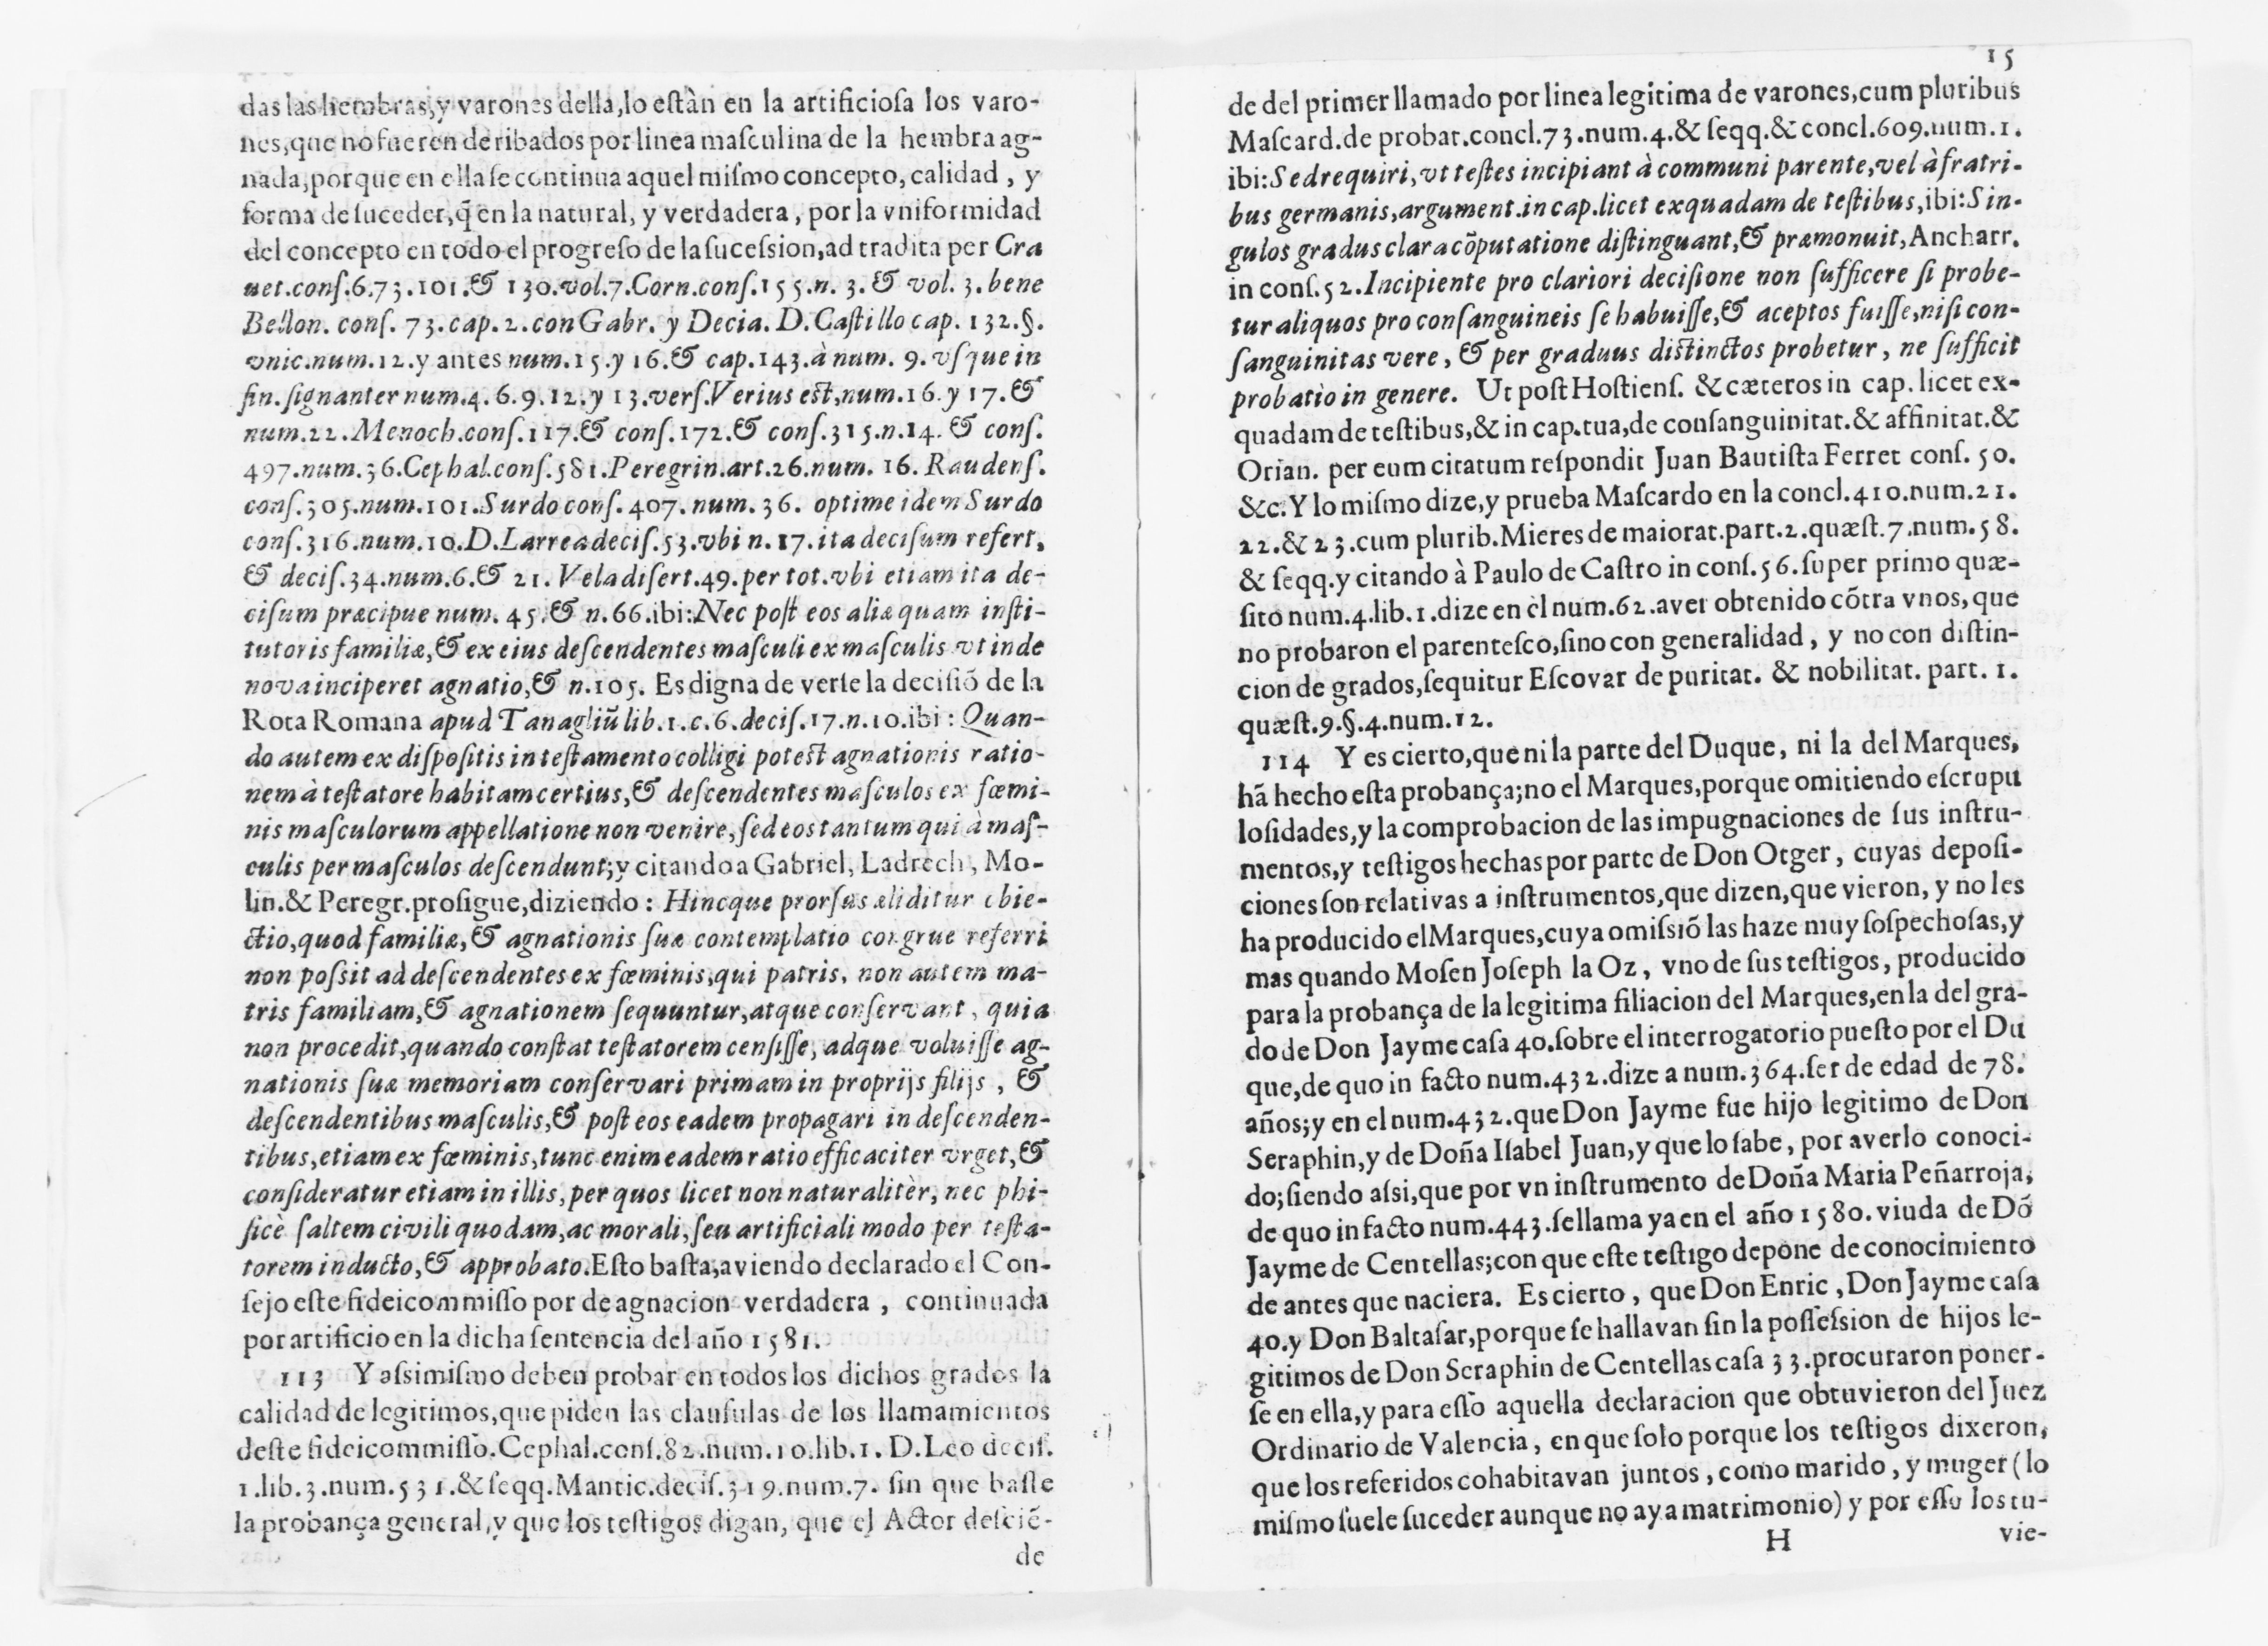 das las hembras, y varones della, lo estàn en la artificiosa los varo-
nes, que no fueren deribados por linea masculina de la hembra ag-
nada, porque en ella se continua aquel mismo concepto, calidad, y
forma de suceder, q̃ en la natural, y verdadera, por la vniformidad
del concepto en todo el progreso de la sucession, ad tradita per Cra
uet. cons. 6. 73. 101. & 130. vol. 7. Corn. cons. 155. n. 3. & vol. 3. bene
Bellon. cons. 73. cap. 2. con Gabr. y Decia. D. Castillo cap. 132. §.
vnic. num. 12. y antes num. 15. y 16. & cap. 143. à num. 9. vsque in
fin. signanter num. 4. 6. 9. 12. y 13. vers. Verius est, num. 16. y 17. &
num. 22. Menoch. cons. 117. & cons. 172. & cons. 315. n. 14. & cons.
497. num. 36. Cephal. cons. 581. Peregrin. art. 26. num. 16. Raudens.
cons. 305. num. 101. Surdo cons. 407. num. 36. optime idem Surdo
cons. 316. num. 10. D. Larrea decis. 53. vbi n. 17. ita decisum refert,
& decis. 34. num. 6. & 21. Vela disert. 49. per tot. vbi etiam ita de-
cisum præcipue num. 45. & n. 66. ibi: Nec post eos aliæ quam insti-
tutoris familiæ, & ex eius descendentes masculi ex masculis vt inde
nova inciperet agnatio, & n. 105. Es digna de verse la decisiõ de la
Rota Romana apud Tanagliũ lib. 1. c. 6. decis. 17. n. 10. ibi: Quan-
do autem ex dispositis in testamento colligi potest agnationis ratio-
nem à testatore habitam certius, & descendentes masculos ex fœmi-
nis masculorum appellatione non venire, sed eos tantum qui à mas-
culis per masculos descendunt; y citando a Gabriel, Ladrech, Mo-
lin. & Peregr. prosigue, diziendo: Hincque prorsus æliditur obie-
ctio, quod familiæ, & agnationis suæ contemplatio congrue referri
non possit ad descendentes ex fœminis, qui patris, non autem ma-
tris familiam, & agnationem sequuntur, atque conservant, quia
non procedit, quando constat testatorem censisse, adque voluisse ag-
nationis suæ memoriam conservari primam in proprijs filijs, &
descendentibus masculis, & post eos eadem propagari in descenden-
tibus, etiam ex fœminis, tunc enim eadem ratio efficaciter vrget, &
consideratur etiam in illis, per quos licet non naturalitèr, nec phi-
sicè saltem civili quodam, ac morali, seu artificiali modo per testa-
torem inducto, & approbato. Esto basta, aviendo declarado el Con-
sejo este fideicommisso por de agnacion verdadera, continuada
por artificio en la dicha sentencia del año 1581.
113 Y assimismo deben probar en todos los dichos grados la
calidad de legitimos, que piden las clausulas de los llamamientos
deste fideicommisso. Cephal. cons. 82. num. 10. lib. 1. D. Leo decis.
1. lib. 3. num. 531. & seqq. Mantic. decis. 319. num. 7. sin que baste
la probança general, y que los testigos digan, que el Actor desciẽ-
de
15
de del primer llamado por linea legitima de varones, cum pluribus
Mascard. de probat. concl. 73. num. 4. & seqq. & concl. 609. num. 1.
ibi: Sed requiri, vt testes incipiant à communi parente, vel à fratri-
bus germanis, argument. in cap. licet ex quadam de testibus, ibi: Sin-
gulos gradus clara cõputatione distinguant, & præmonuit, Ancharr.
in cons. 52. Incipiente pro clariori decisione non sufficere si probe-
tur aliquos pro consanguineis se habuisse, & aceptos fuisse, nisi con-
sanguinitas vere, & per graduus distinctos probetur, ne sufficit
probatio in genere. Ut post Hostiens. & cæteros in cap. licet ex-
quadam de testibus, & in cap. tua, de consanguinitat. & affinitat. &
Orian. per eum citatum respondit Juan Bautista Ferret cons. 50.
&c. Y lo mismo dize, y prueba Mascardo en la concl. 410. num. 21.
22. & 23. cum plurib. Mieres de maiorat. part. 2. quæst. 7. num. 58.
& seqq. y citando à Paulo de Castro in cons. 56. super primo quæ-
sito num. 4. lib. 1. dize en el num. 62. aver obtenido cõtra vnos, que
no probaron el parentesco, sino con generalidad, y no con distin-
cion de grados, sequitur Escovar de puritat. & nobilitat. part. 1.
quæst. 9. §. 4. num. 12.
114 Y es cierto, que ni la parte del Duque, ni la del Marques,
hã hecho esta probança; no el Marques, porque omitiendo escrupu
losidades, y la comprobacion de las impugnaciones de sus instru-
mentos, y testigos hechas por parte de Don Otger, cuyas deposi-
ciones son relativas a instrumentos, que dizen, que vieron, y no les
ha producido el Marques, cuya omissiõ las haze muy sospechosas, y
mas quando Mosen Joseph la Oz, vno de sus testigos, producido
para la probança de la legitima filiacion del Marques, en la del gra-
do de Don Jayme casa 40. sobre el interrogatorio puesto por el Du
que, de quo in facto num. 432. dize a num. 364. ser de edad de 78.
años; y en el num. 432. que Don Jayme fue hijo legitimo de Don
Seraphin, y de Doña Isabel Juan, y que lo sabe, por averlo conoci-
do; siendo assi, que por vn instrumento de Doña Maria Peñarroja,
de quo in facto num. 443. se llama ya en el año 1580. viuda de Dõ
Jayme de Centellas; con que este testigo depone de conocimiento
de antes que naciera. Es cierto, que Don Enric, Don Jayme casa
40. y Don Baltasar, porque se hallavan sin la possession de hijos le-
gitimos de Don Seraphin de Centellas casa 33. procuraron poner-
se en ella, y para esto aquella declaracion que obtuvieron del Juez
Ordinario de Valencia, en que solo porque los testigos dixeron,
que los referidos cohabitavan juntos, como marido, y muger (lo
mismo suele suceder aunque no aya matrimonio) y por esso los tu-
H
vie-